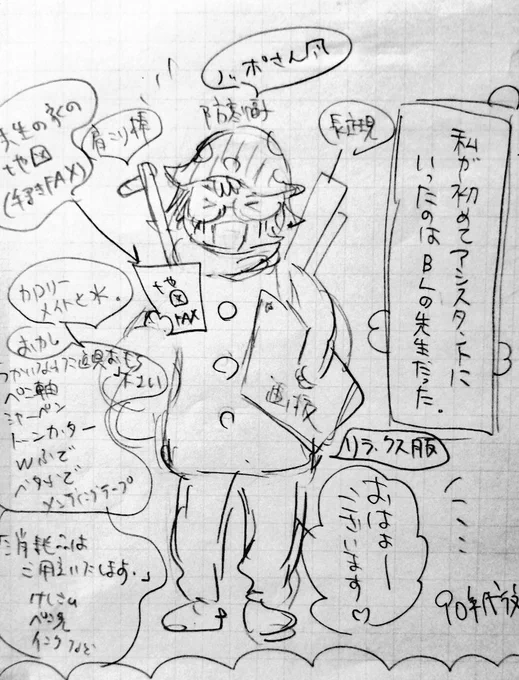 私が初めてアシスタントに
いったのはBLの先生だった。
ノッポさん風
防寒帽
長定規
肩こり棒
先生の家の
地図
(手書きFAX)
地
図
FAX
カロリー
メイトと水。
おかし
つかいなれた道具おもち
下さい
ペン軸
シャーペン
トーンカッター
Wふで
ベタふで
メンディングテープ
画板
リラックス服
おはよー
ございます♡
「消耗品は
ご用意いたします。」
けしゴム
ペン先
インクなど
90年代